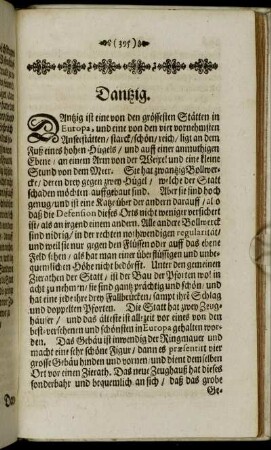 (395)
Dantzig.
DAntzig ist eine von den grössesten Stätten in
Europa, und eine von den vier vornehmsten
Anseestätten/ starck/ schön/ reich/ ligt an dem
Fuß eines hohen Hügels/ und auff einer anmuthigen
Ebene/ an einem Arm von der Weixel und eine kleine
Stund von dem Meer. Sie hat zwantzig Bollwer-
cke/ deren drey gegen zwey Hügel/ welche der Statt
schaden möchten auffgebaut sind. Aber sie sind hoch
genug/ und ist eine Katze über der andern darauff/ also
daß die Defension dieses Orts nicht weniger versichert
ist/ als an irgend einem andern. Alle andere Bollwerck
sind nidrig/ in der rechten nohtwendigen regularität/
und weil sie nur gegen den Flüssen oder auff das ebene
Feld sehen/ als hat man einer überflüssigen und unbe-
quemlichen Höhe nicht bedörfft. Unter den gemeinen
Zierathen der Statt/ ist der Bau der Pforten wol in
acht zu nehmen/ sie sind gantz prächtig und schön/ und
hat eine jede ihre drey Fallbrücken/ sampt ihre Schläg
und doppelten Pforten. Die Statt hat zwey Zeug-
häuser/ und das älteste ist allzeit vor eines von den
best-versehenen und schönsten in Europa gehalten wor-
den. Das Gebäu ist inwendig der Ringmauer und
macht eine sehr schöne Figur/ dann es præsentirt vier
grosse Gebäu hinden und vornen/ und dient demselben
Ort vor einen Zierath. Das neue Zeughauß hat dieses
sonderbahr und bequemlich an sich/ daß das grobe
Ge-